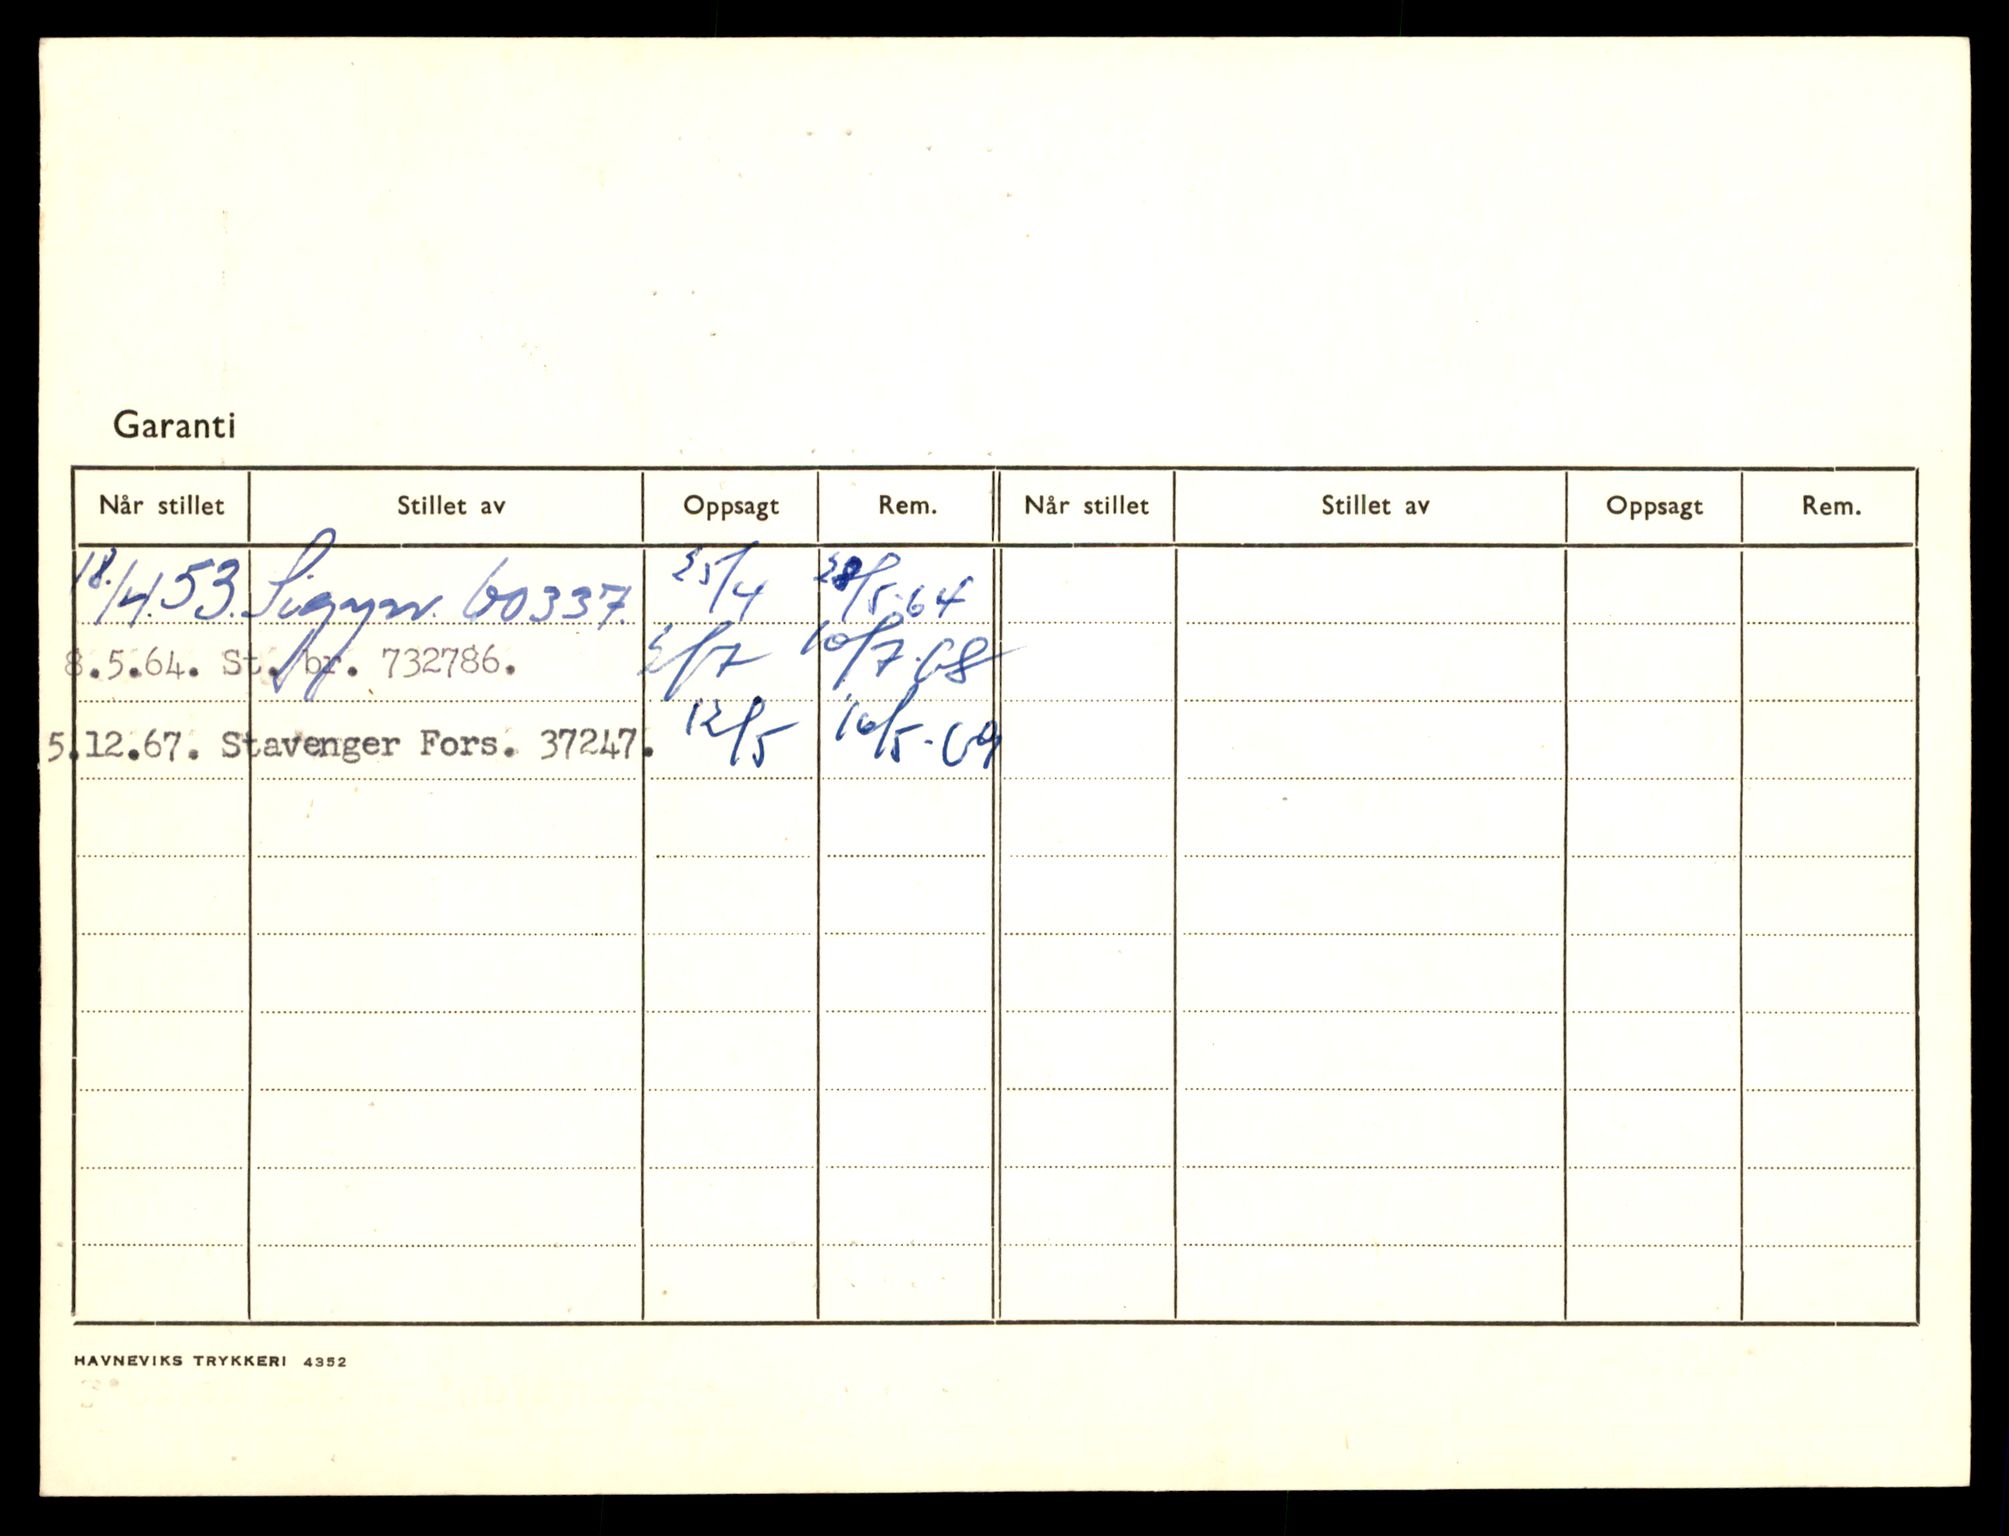 Garanti
Når stillet Stillet av Oppsagt Rem. Når stillet Stillet av Oppsagt Rem.
18./4.53. Sigyn. 60337. 25/4 28/5-64
8.5.64. St. br. 732786. 2/7 10/7-68
5.12.67. Stavenger Fors. 37247. 12/5 16/5-69
HAVNEVIKS TRYKKERI 4352